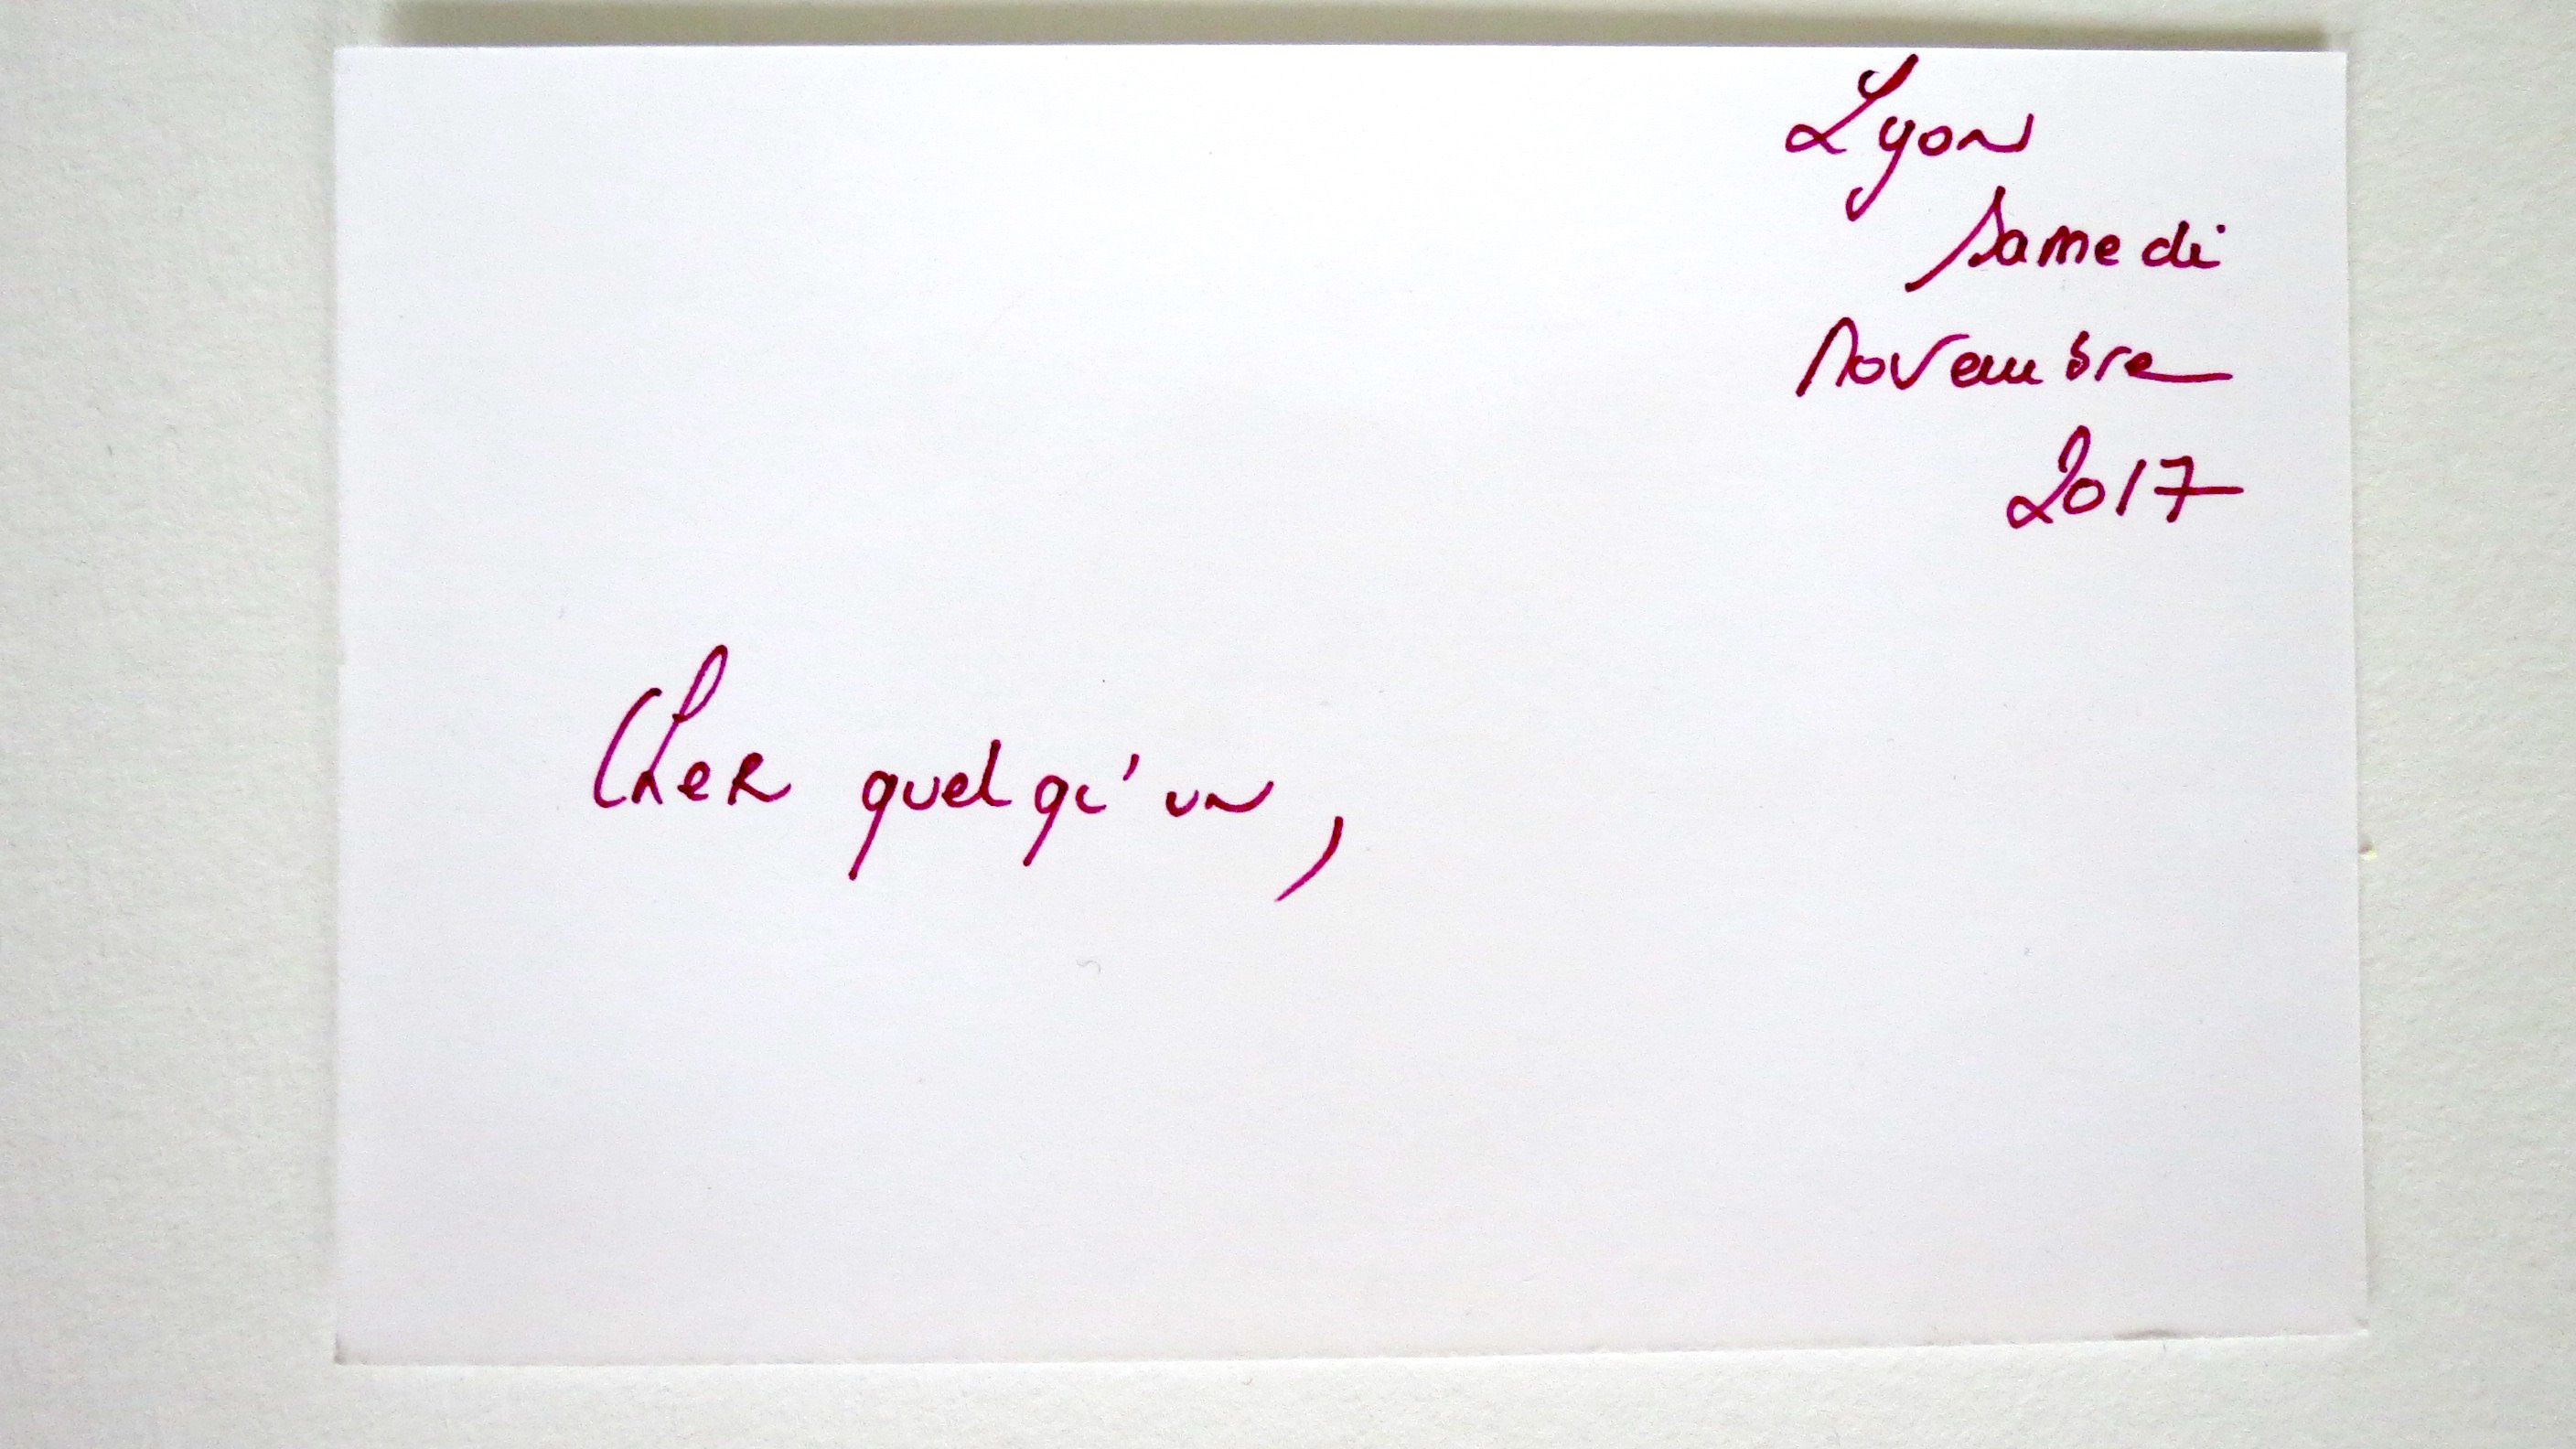 Lyon
Samedi
Novembre
2017
Cher quelqu'un,